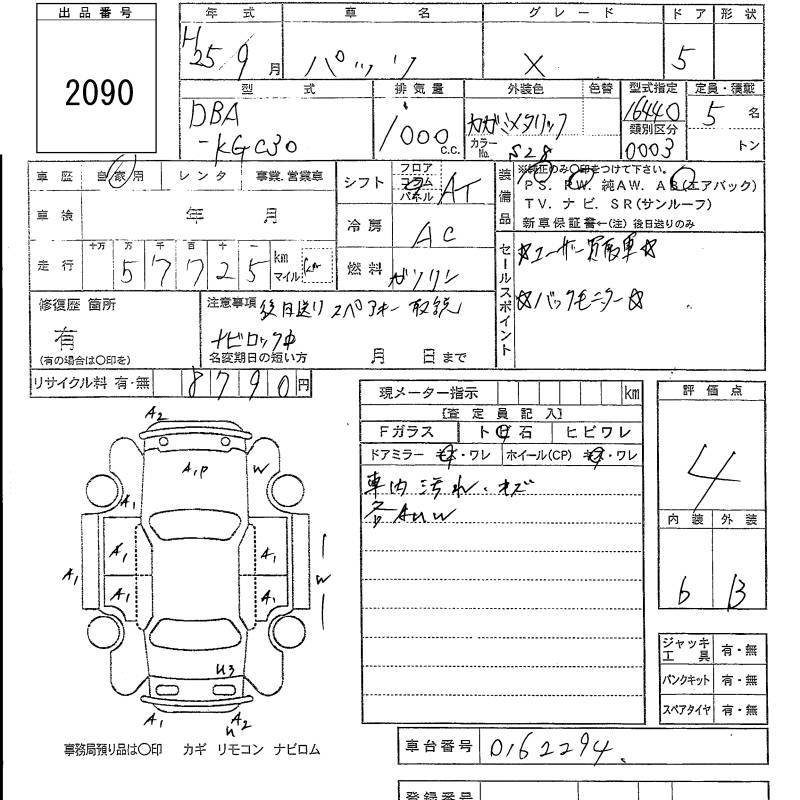 出品番号
2090
年式 車名 グレード ドア 形状
H25/9月 パッソ X 5
型式 排気量 外装色 色替 型式指定 定員・積載
DBA 16440 5名
-KGC30 1000c.c. 類別区分
カラーNo. S28 0003 トン
車歴 自家用 レンタ 事業.営業車
シフト フロア コラム パネル AT
装備品 ※純正のみ〇印をつけて下さい。
PS. PW. 純AW. AB(エアバック)
TV. ナビ. SR(サンルーフ)
新車保証書←(注) 後日送りのみ
車検 年 月
冷房 AC
走行 十万 万 千 百 十 一
57725 km マイル km
燃料 ガソリン
セールスポイント
☆ユーザー買取車☆
☆バックモニター☆
修復歴 箇所
有
(有の場合は〇印を)
注意事項 後日送り スペアキー 取説
ナビロック中
名変期日の短い方 月 日まで
リサイクル料 有・無 8790円
現メーター指示 km
[査定員記入]
Fガラス ト石 ヒビワレ
ドアミラー キ・ワレ ホイール(CP) キ・ワレ
車内汚れ・キズ
各AUW
評価点
4
内装 外装
6 B
A2
A1P W
A1
A1 A1
A1 W
A1 A1
U3
A1 A2
U
ジャッキ工具 有・無
パンクキット 有・無
スペアタイヤ 有・無
車台番号 0162294
事務局預り品は〇印 カギ リモコン ナビロム
登録番号